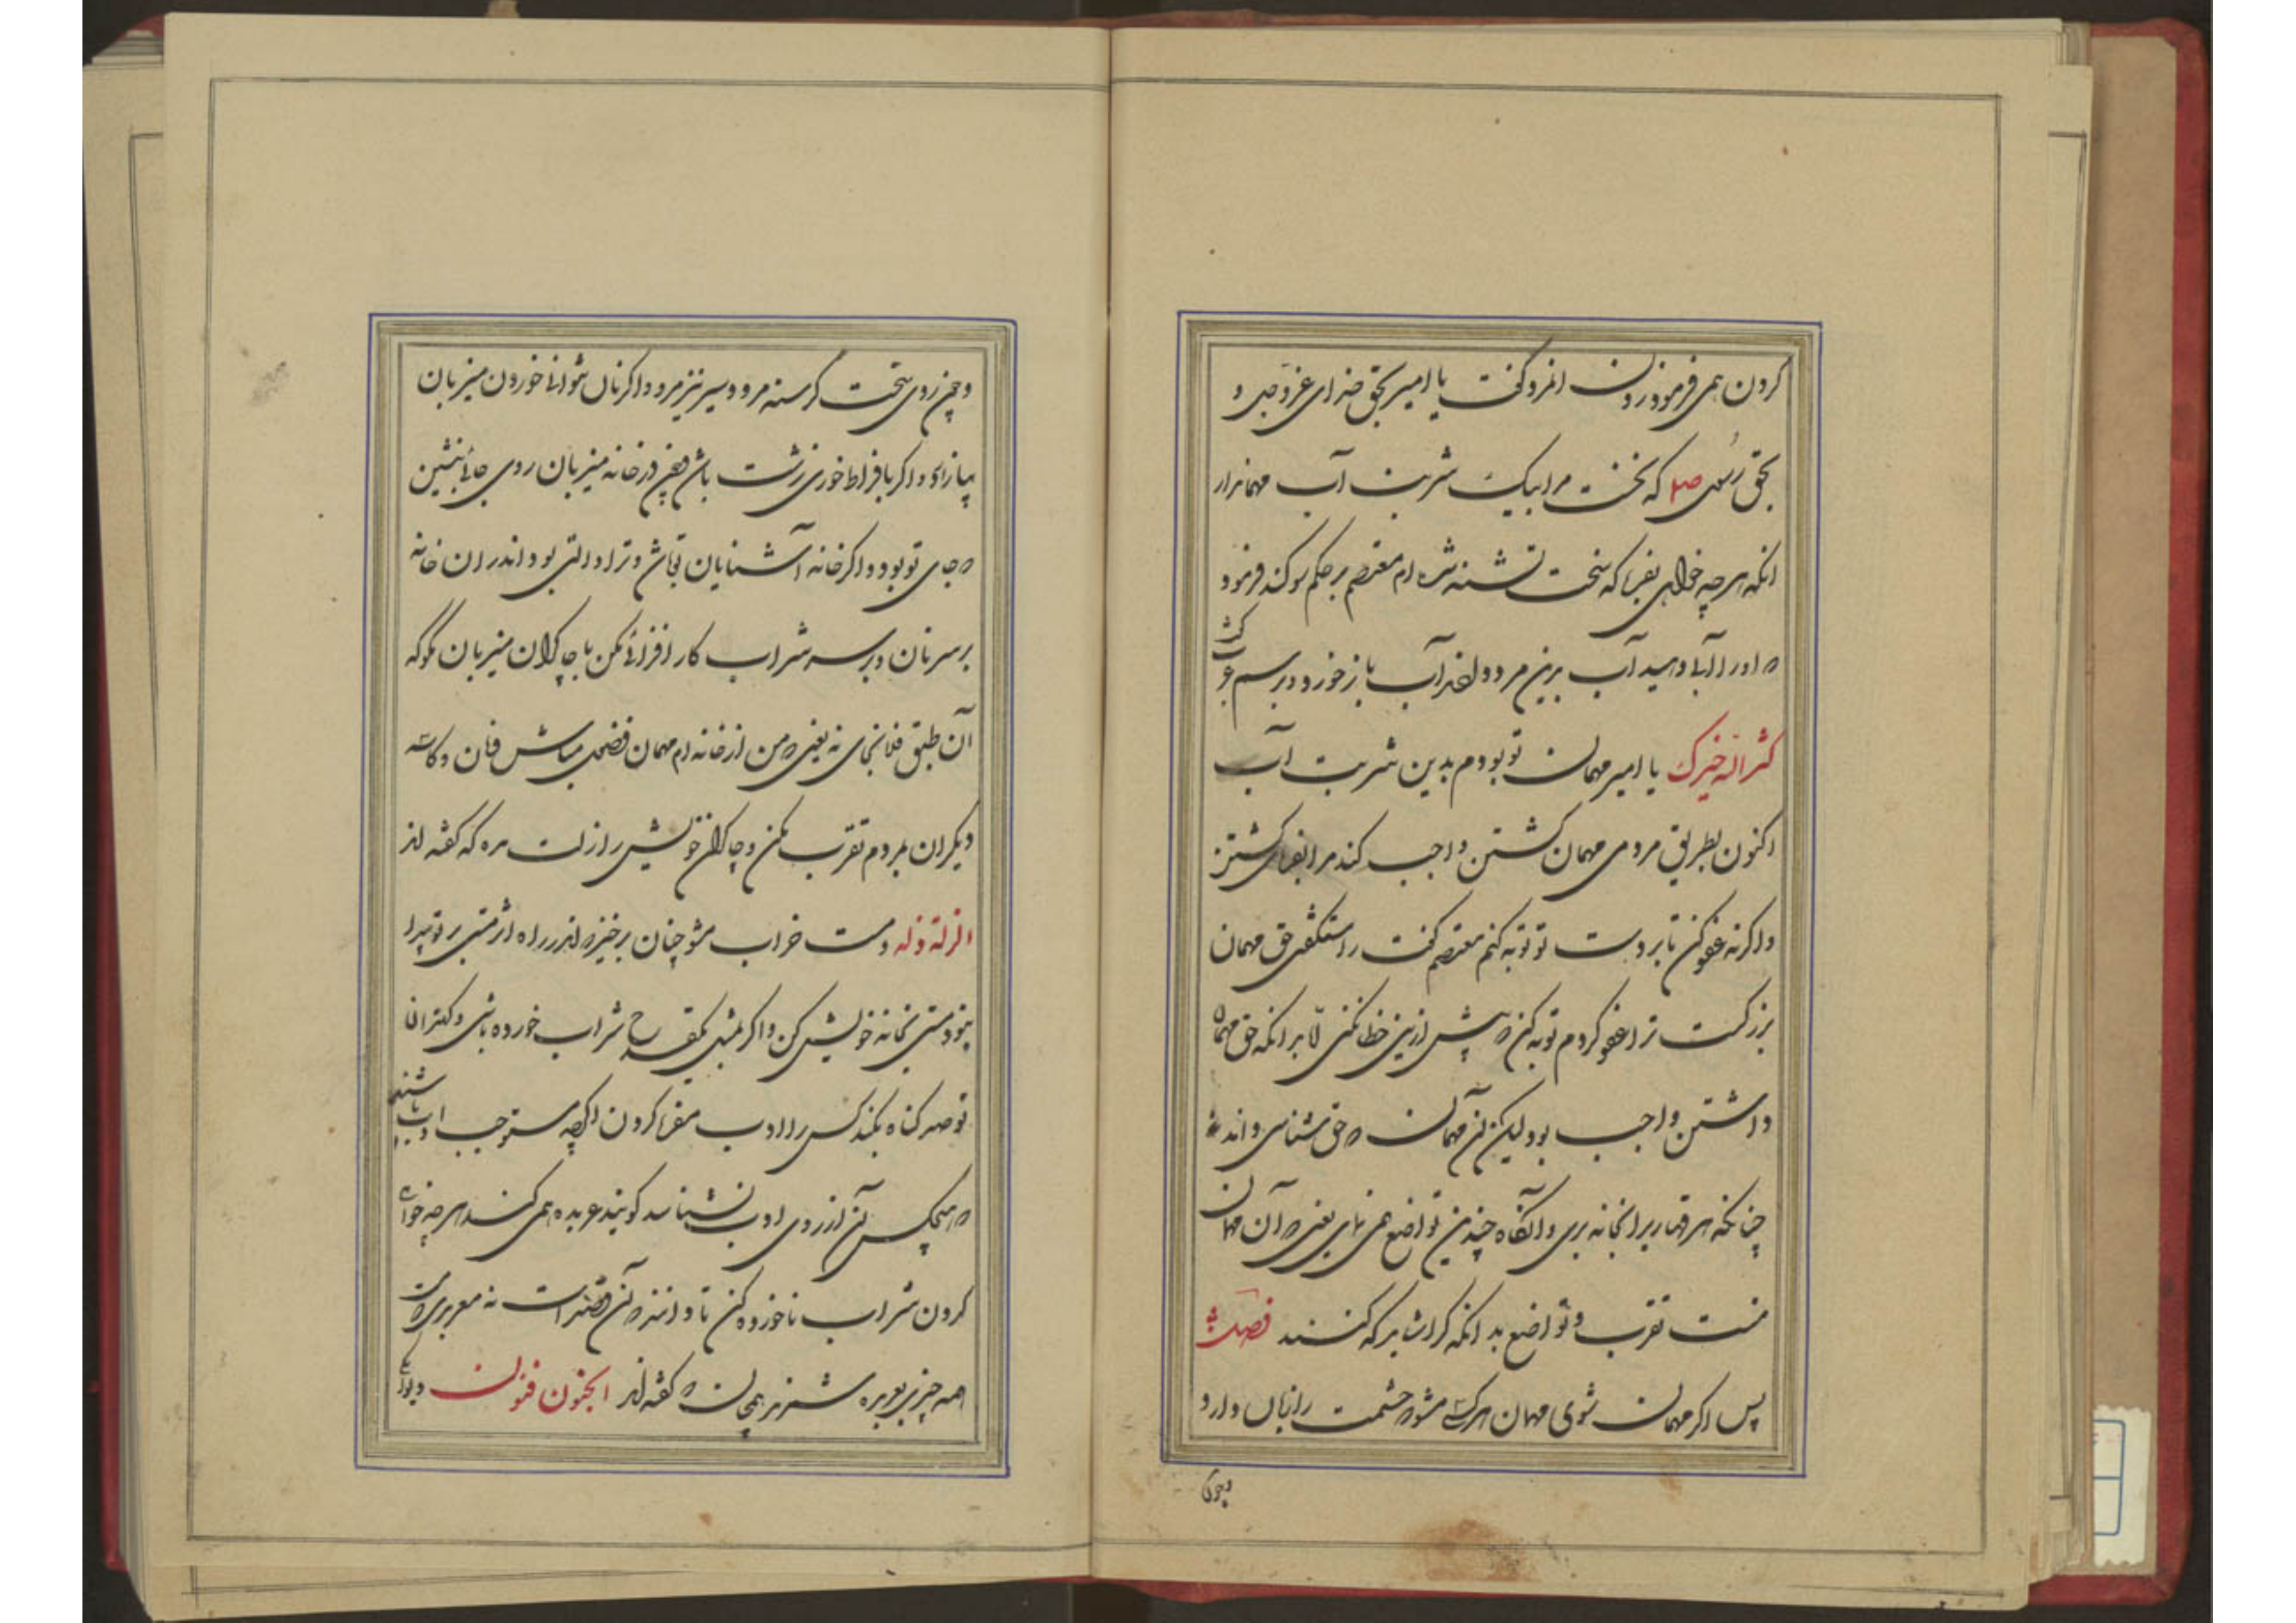 کردن همی فرمود زدن انمرد گفت یا امیر بحق خدای عزوجل و
بحق رسول صلم که نخست مرا بیک شربت آب مهماندار
انگه هر چه خواهی بفرما که سخت تشنه شده ام معتصم بر حکم سوکند فرمود
که او را آب دهید آب برین مرد دادند آب باز خورد و برسم عرب گفت
کثرالله خیرک یا امیر مهمان تو بودم بدین شربت آب
اکنون بطریق مردمی مهمان کشتن واجب کند مرا بفرمای کشتن
واگرنه عفو کن تا بر دست تو توبه کنم معتصم گفت راست گفتی حق مهمان
بزرکست ترا عفو کردم توبه کن که پیش ازین خطا نکنی لا بدانکه حق مهمان
داشتن واجب بود لیکن آن مهمان که حق شناسی داند نه
چنانکه هر قماربرا بخانه بری و آنگاه چندین تواضع همی نمای یعنی که آن مهمان
منست تقرب و تواضع بدانکه کرا شاید که کنند فصل
پس اگر مهمان شوی مهمان هر کسی مشو که حشمت را زیان دارد
وچون
وچون روی سخت گرسنه مرو و سیر نیز مرو واگر نان نتوانی خوردن میزبان
بیازارد و اگر بافراط خوری زشت باشد و چون در خانه میزبان روی جائی بنشین
که جای تو بود و اگر خانه آشنایان تو باشد و ترا دالتی بود اندر ان خانه
بر سر نان و بر سر شراب کار افزائی مکن با چاکران میزبان مگو که
آن طبق فلان جای نه یعنی که من از خانه ام مهمان فضول مباش و نان و کاسه
دیکران بمردم تقرب مکن و چاکران خویش را زلت مده که گفته اند
الزلة ذلة و مست خراب مشو چنان برخیز که اندر راه اثر مستی بر تو پیدا
نبود مستی بخانه خویش کن و اگر بمثل یکقدح شراب خورده باشی و کهتران
تو صد کناه بکنند کسی را ادب مفرما کردن اگرچه مستوجب ادب باشند
که هیچکس آن از روی ادب نشناسد گویند عربده همی کند هر چه خواهی
کردن شراب ناخورده کن تا دانند که آن قصد است نه معربدی که از مست
همه چیزی بعربده شمرند همچنان که گفته اند الجنون فنون دیوانگی